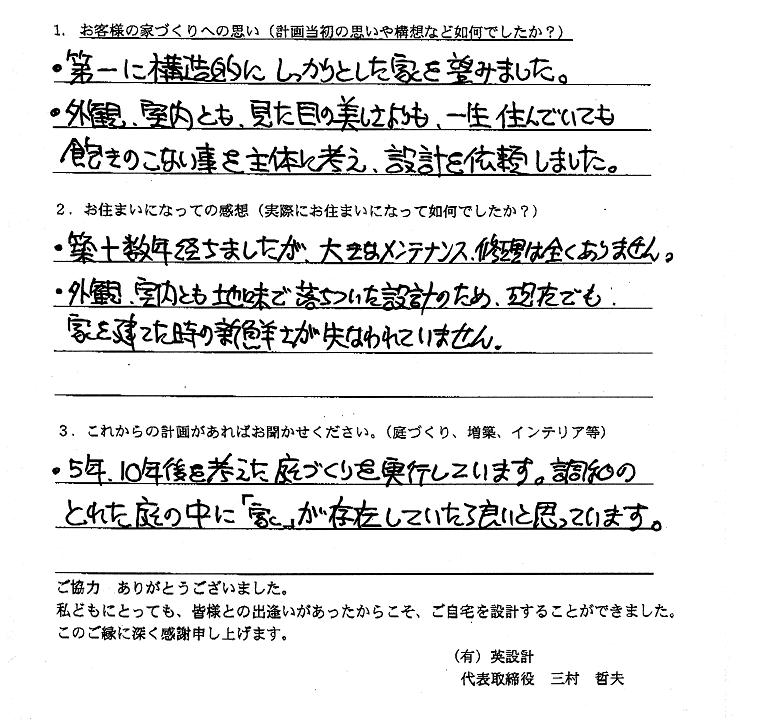 1. お客様の家づくりへの思い（計画当初の思いや構想など如何でしたか？）
・第一に構造的にしっかりとした家を望みました。
・外観、室内とも、見た目の美しさよりも、一生住んでいても
飽きのこない事を主体に考え、設計を依頼しました。
2. お住まいになっての感想（実際にお住まいになって如何でしたか？）
・築十数年経ちましたが、大きなメンテナンス、修理は全くありません。
・外観、室内とも地味で落ちついた設計のため、現在でも
家を建てた時の新鮮さが失なわれていません。
3. これからの計画があればお聞かせください。（庭づくり、増築、インテリア等）
・5年、10年後を考えた庭づくりを実行しています。調和の
とれた庭の中に「家」が存在していたら良いと思っています。
ご協力　ありがとうございました。
私どもにとっても、皆様との出逢いがあったからこそ、ご自宅を設計することができました。
このご縁に深く感謝申し上げます。
（有）英設計
代表取締役　三村　哲夫